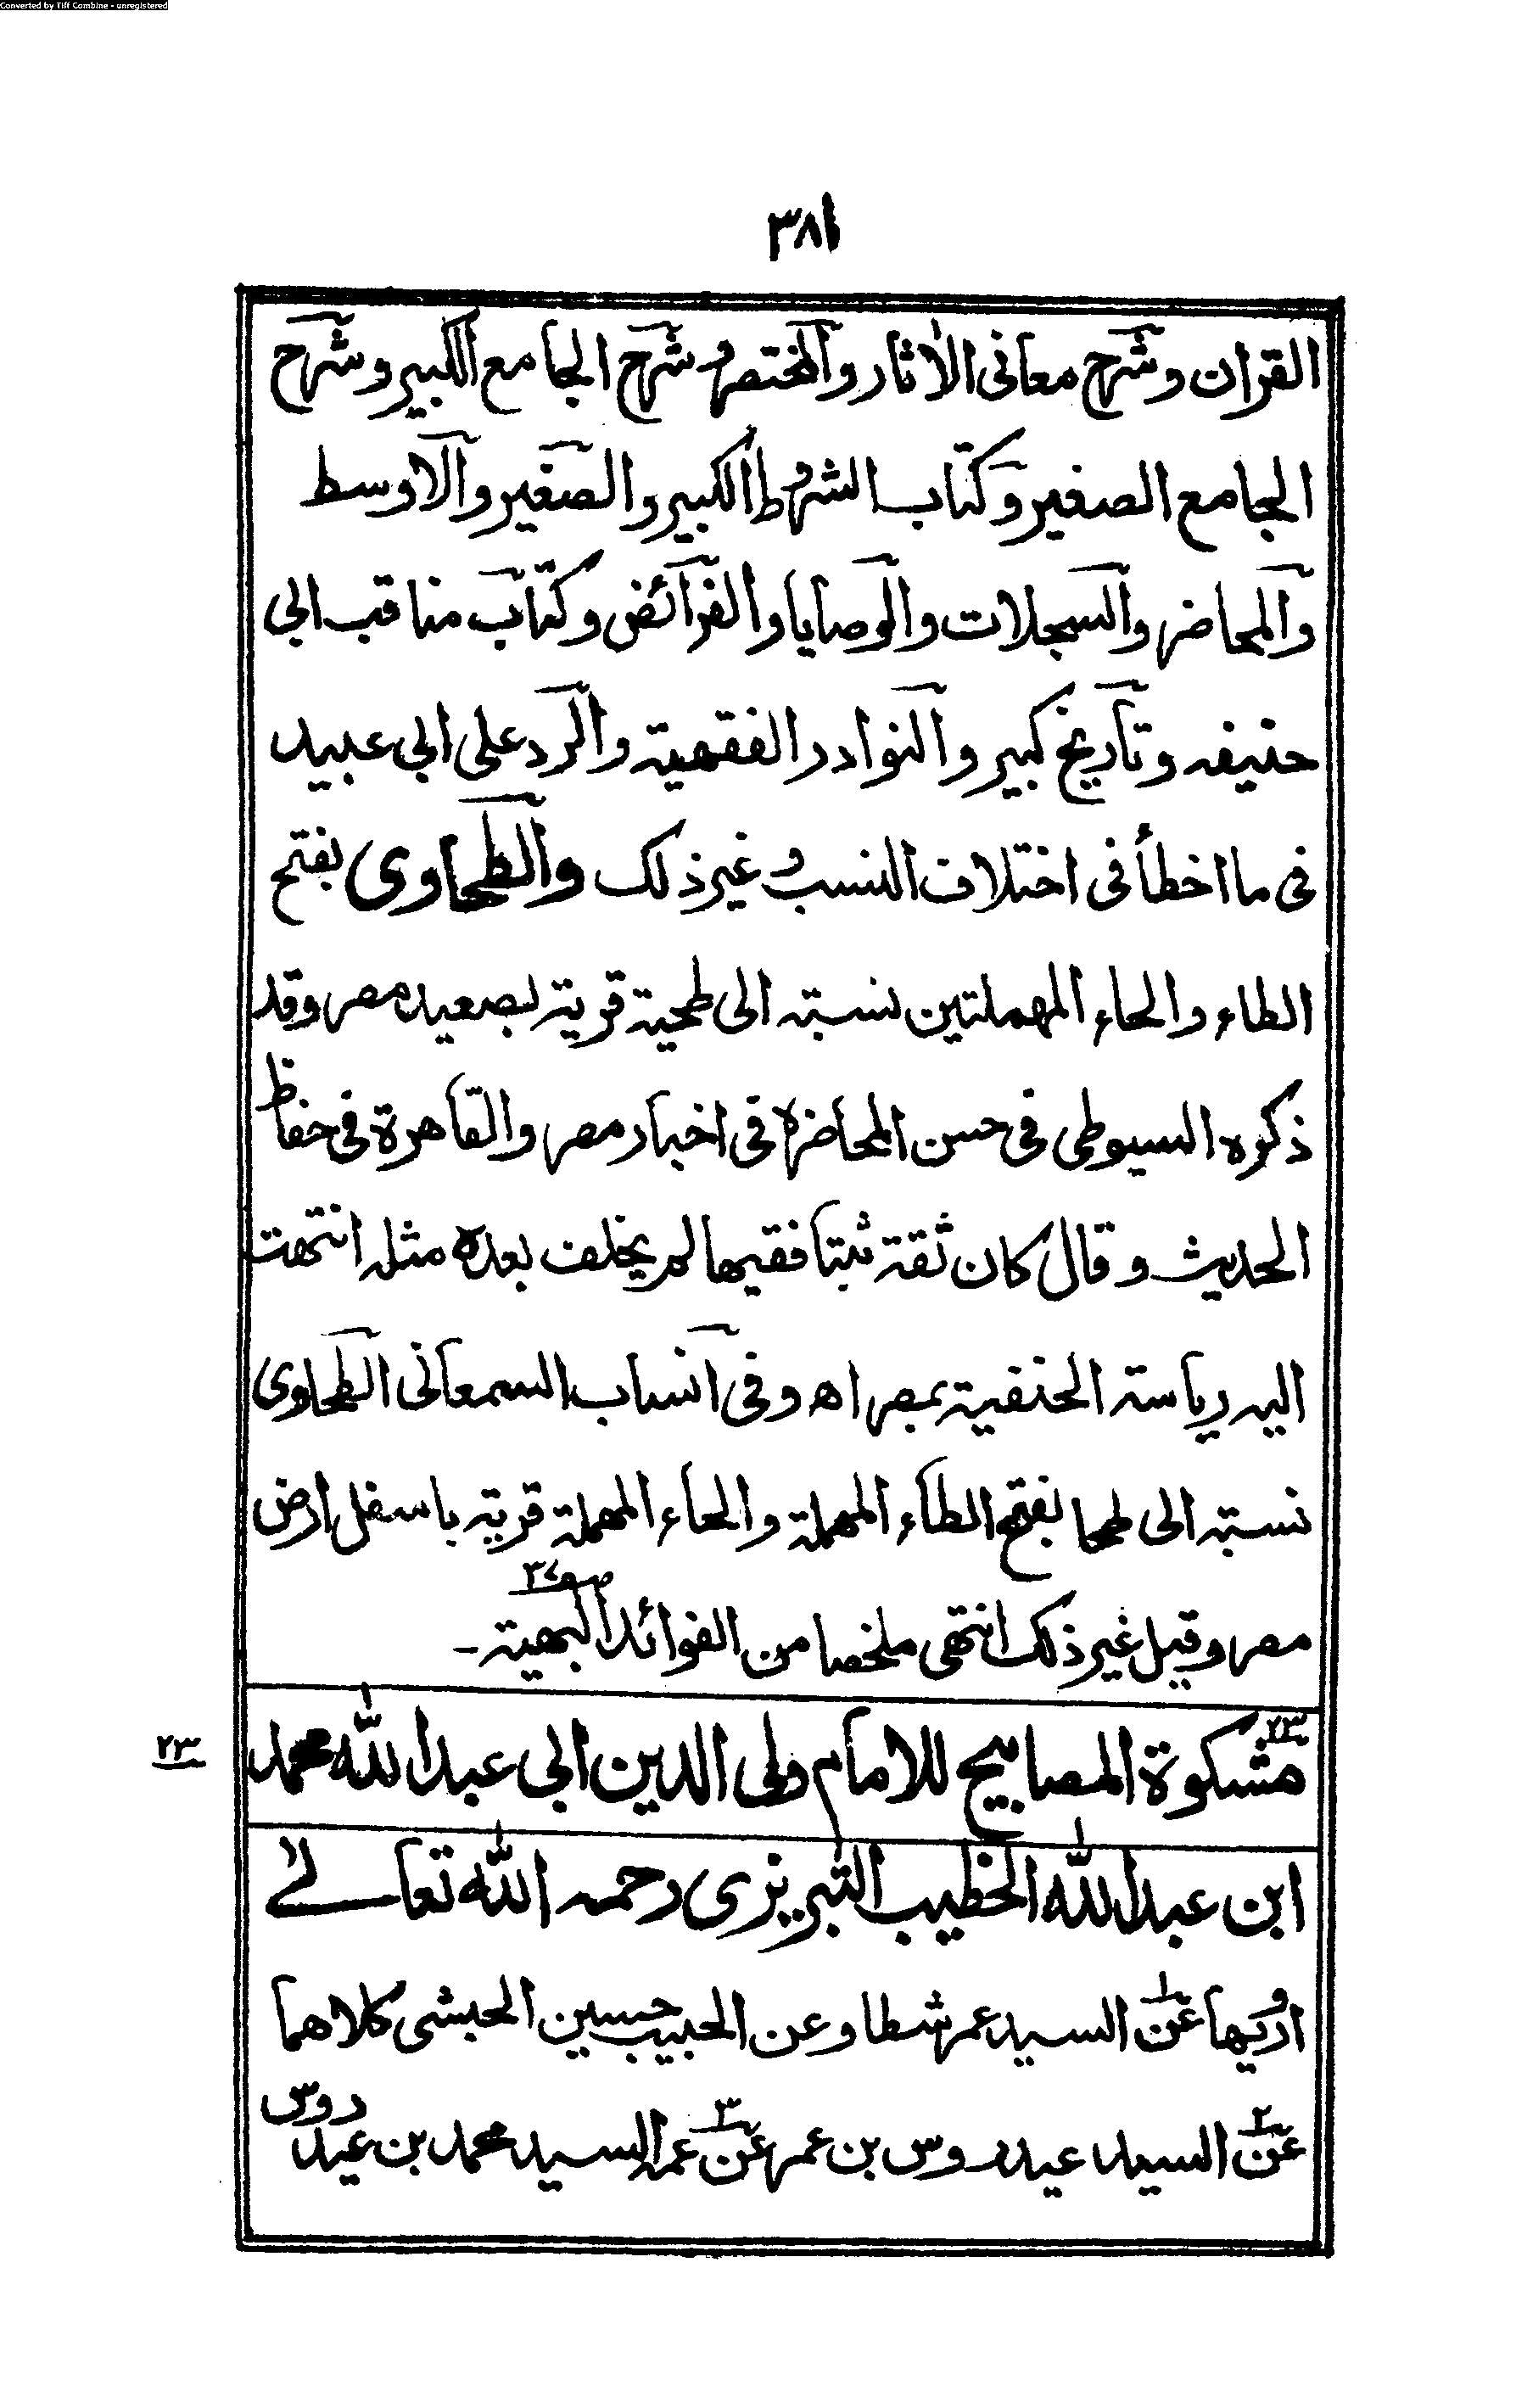 Converted by Tiff Combine - unregistered
٣٨١
القران وشرح معانى الاثار والمختصر وشرح الجامع الكبير وشرح
الجامع الصغير وكتاب الشروط الكبير والصغير والاوسط
والمحاضر والسجلات والوصايا والفرائض وكتاب مناقب ابى
حنيفه وتاريخ كبير والنوادر الفقهية والرد على ابى عبيد
فى ما اخطأ فى اختلاف النسب وغير ذلك والطحاوى بفتح
الطاء والحاء المهملتين نسبته الى طحية قرية بصعيد مصر وقد
ذكره السيوطى فى حسن المحاضرة فى اخبار مصر والقاهرة فى حفاظ
الحديث وقال كان ثقة ثبتا فقيها لم يخلف بعده مثله انتهت
اليه رياسته الحنفية بمصر اه وفى انساب السمعانى الطحاوى
نسبته الى طحا بفتح الطاء المهملة والحاء المهملة قرية باسفل ارض
مصر وقيل غير ذلك انتهى ملخصا من الفوائد البهية ـ
٢٣
مشكوة المصابيح للامام ولى الدين ابى عبد الله محمد
٢٣
ابن عبد الله الخطيب التبريزى رحمه الله تعالے
ارويها عن السيد عمر شطا وعن الحبيب حسين الحبشى كلاهما
٢
عن السيد عيدروس بن عمر عن عمه السيد محمد بن عيدروس
٣